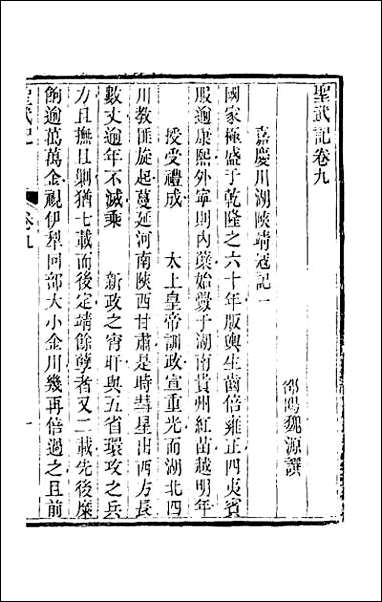 聖武記卷九
邵陽魏源譔
嘉慶川湖陝靖寇記一
國家極盛于乾隆之六十年版輿生齒倍雍正四夷賓
服逾康熙外寧則內蘖始釁于湖南貴州紅苗越明年
授受禮成　太上皇帝訓政宣重光而湖北四
川教匪旋起蔓延河南陝西甘肅是時彗星出西方長
數丈逾年不滅乘　新政之宵旰與五省環攻之兵
力且撫且剿猶七載而後定靖餘孽者又二載先後糜
餉逾萬萬金視伊犁回部大小金川幾再倍過之且前
聖武記
卷九
一